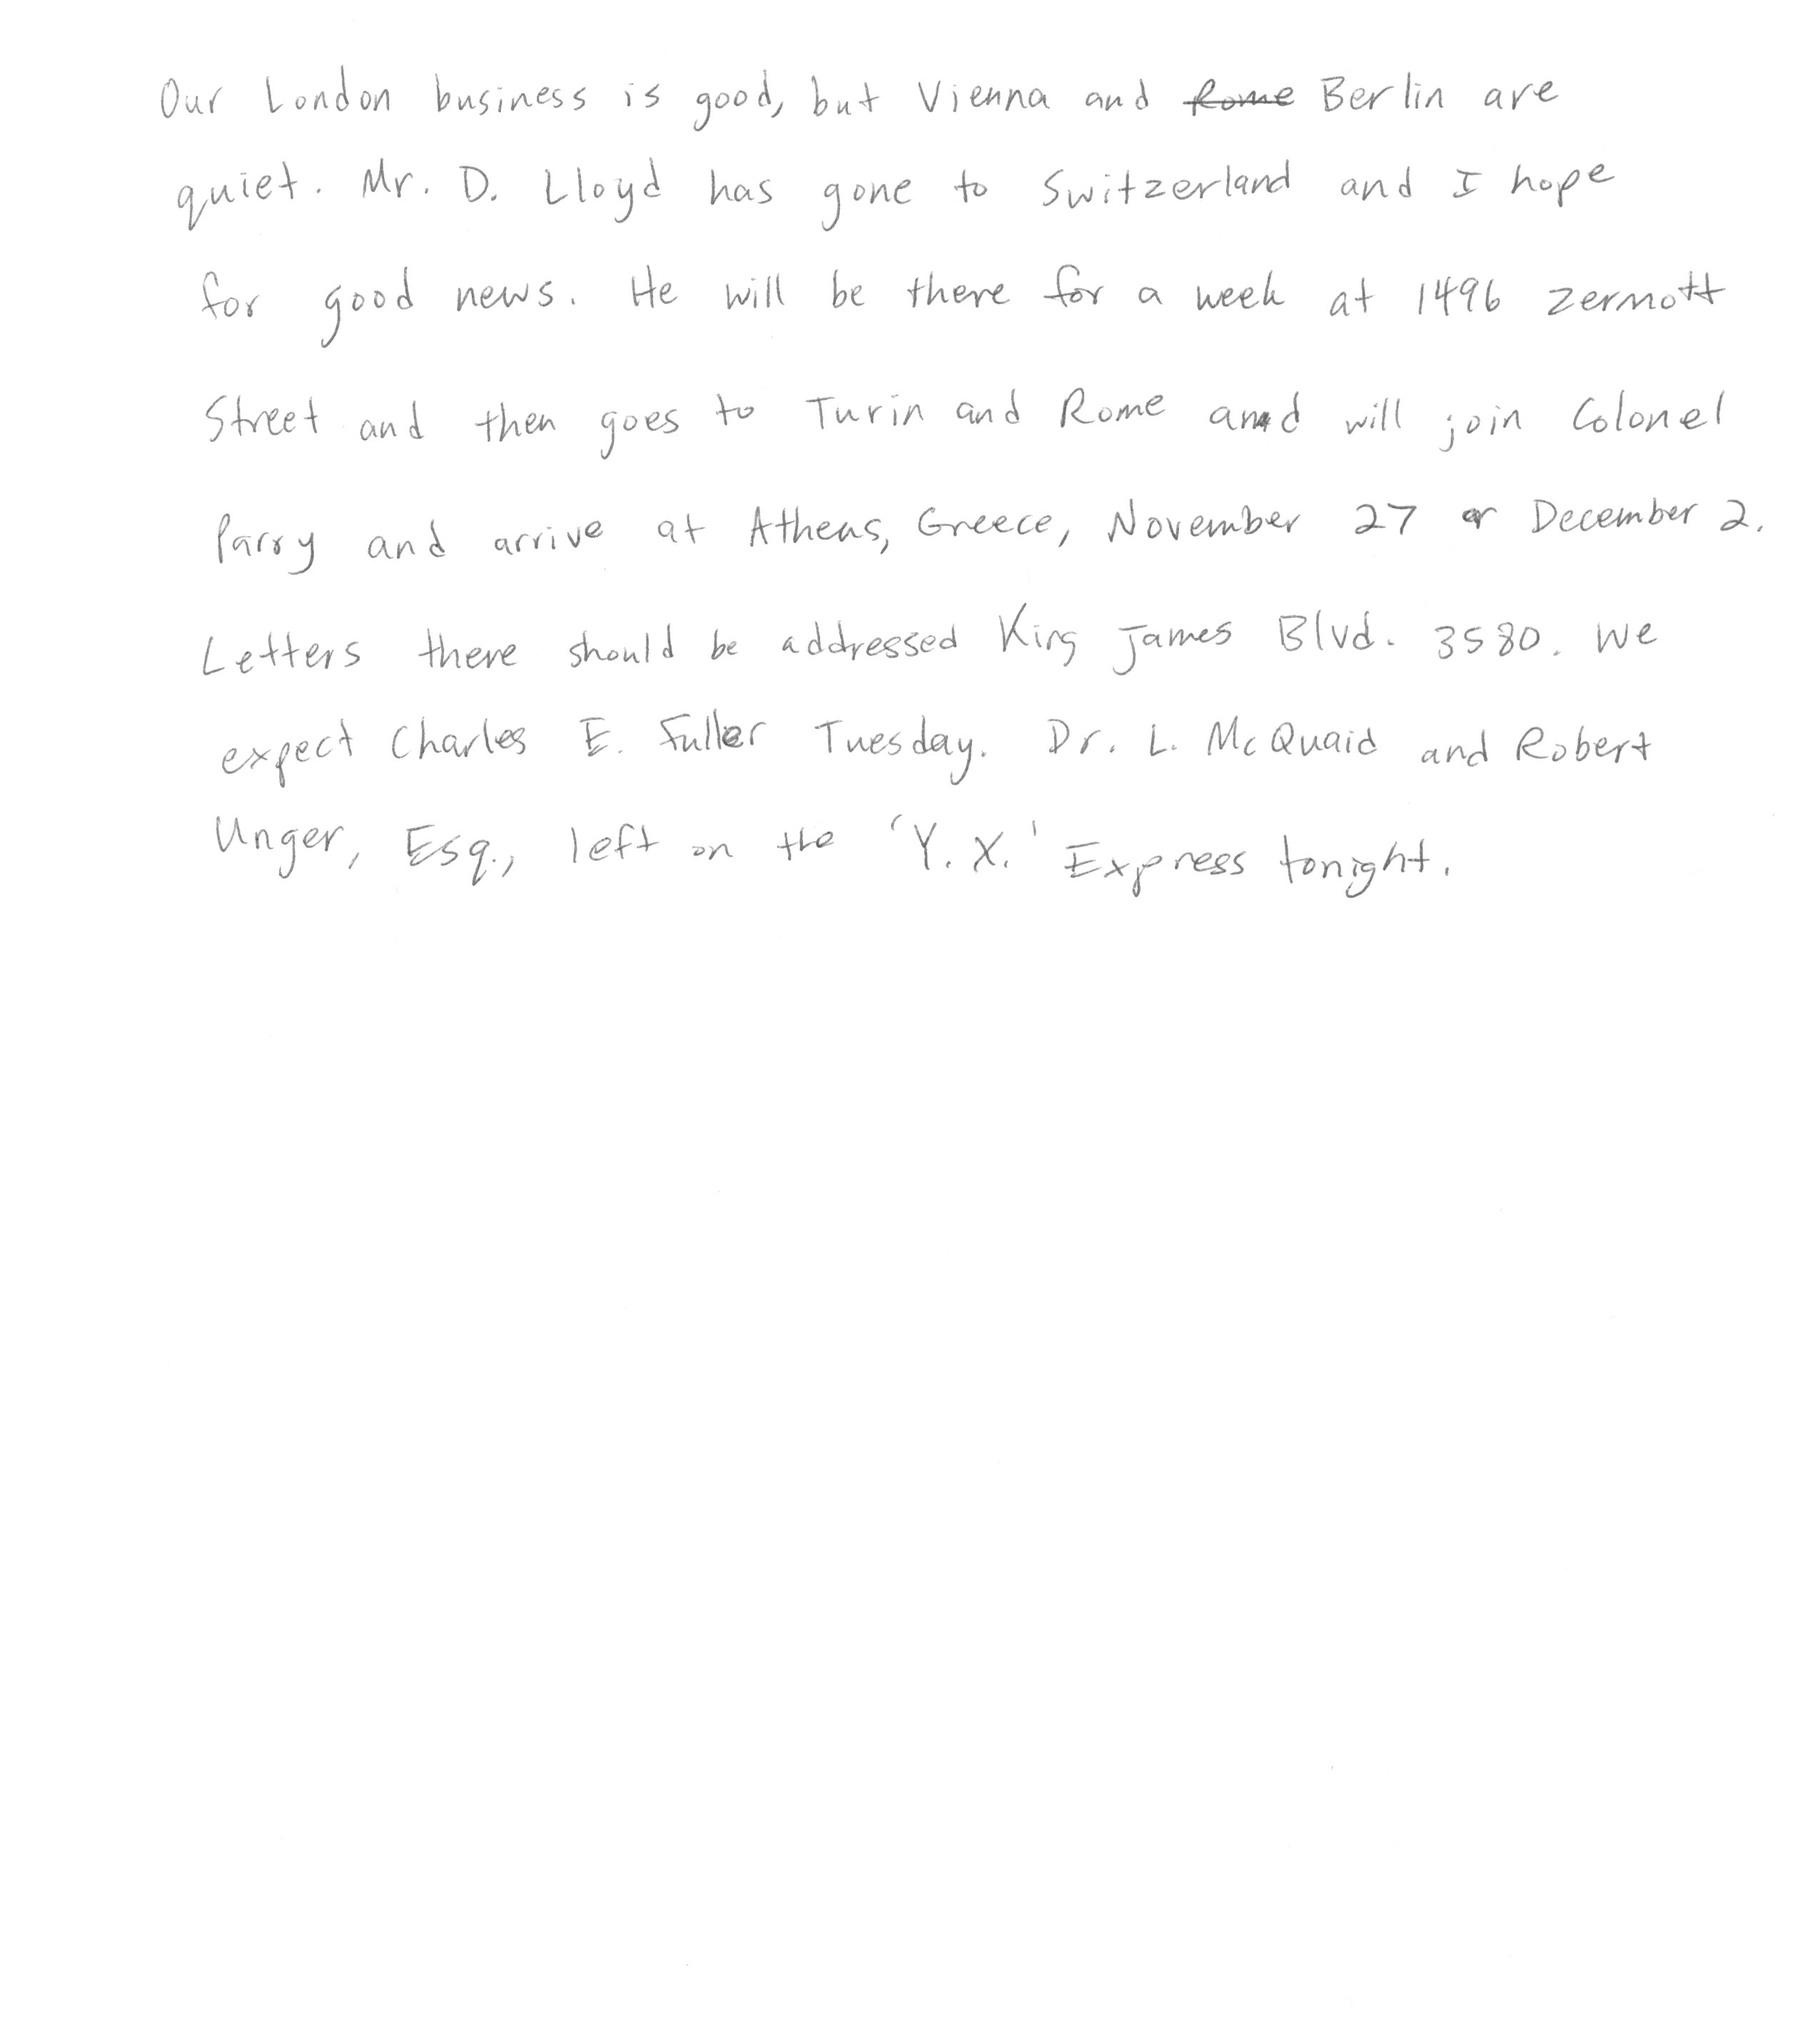 Our London business is good, but Vienna and Rome Berlin are
quiet. Mr. D. Lloyd has gone to Switzerland and I hope
for good news. He will be there for a week at 1496 Zermott
Street and then goes to Turin and Rome and will join Colonel
Parry and arrive at Athens, Greece, November 27 or December 2.
Letters there should be addressed King James Blvd. 3580. We
expect Charles E. Fuller Tuesday. Dr. L. McQuaid and Robert
Unger, Esq., left on the 'Y. X.' Express tonight.